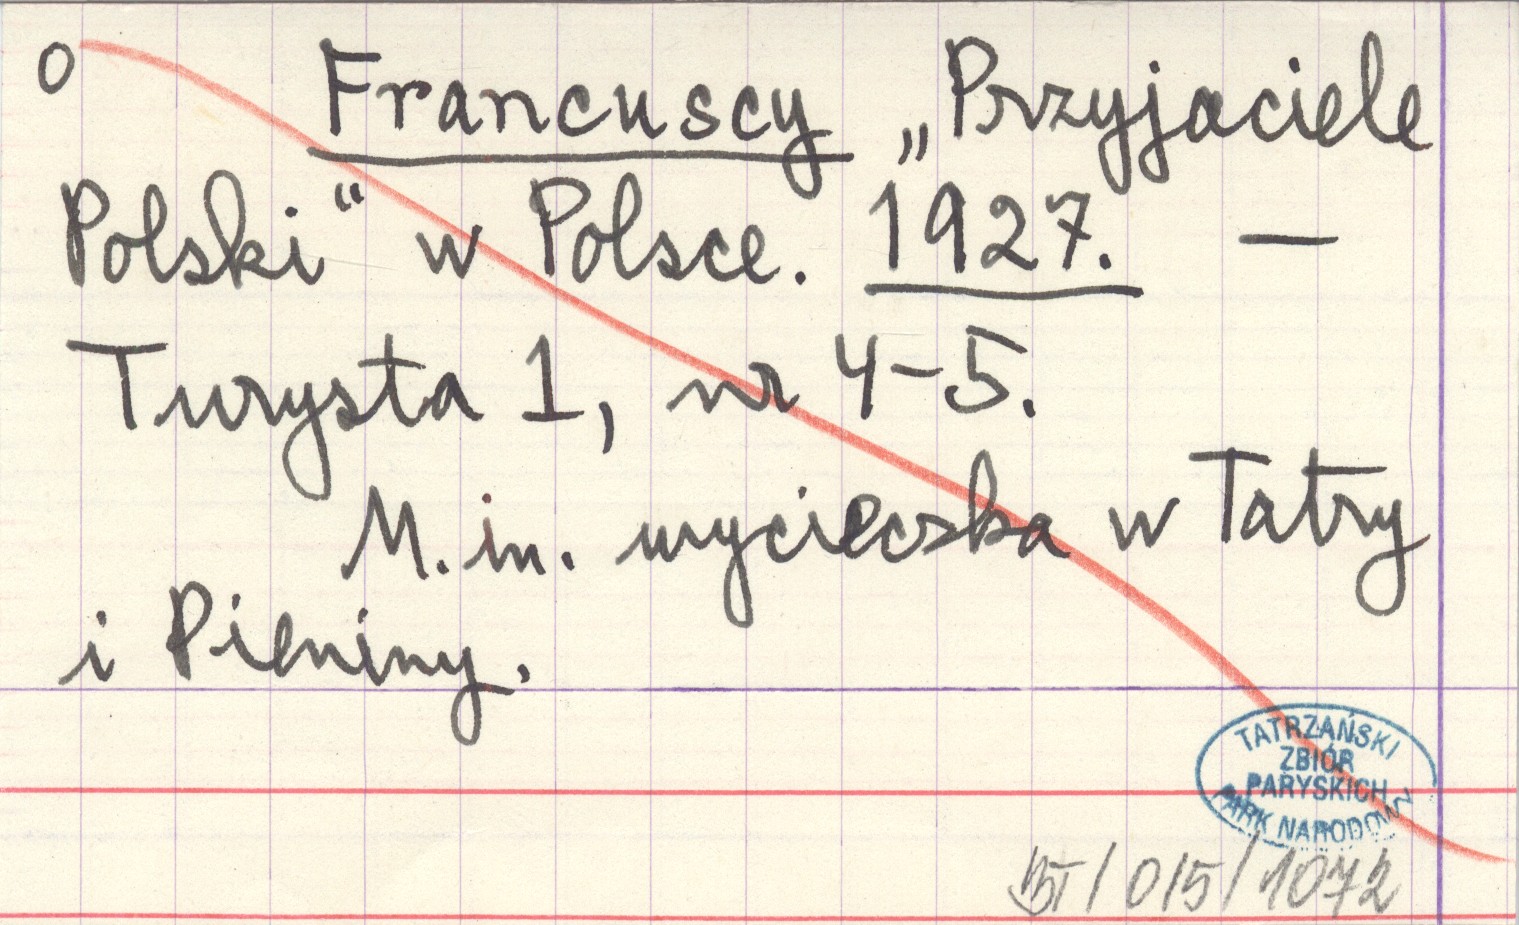 o Francuscy „Przyjaciele
Polski“ w Polsce. 1927. —
Turysta 1, nr 4-5.
M.in. wycieczka w Tatry
i Pieniny.
TATRZAŃSKI
ZBIÓR
PARYSKICH
PARK NARODOWY
BT/015/1072